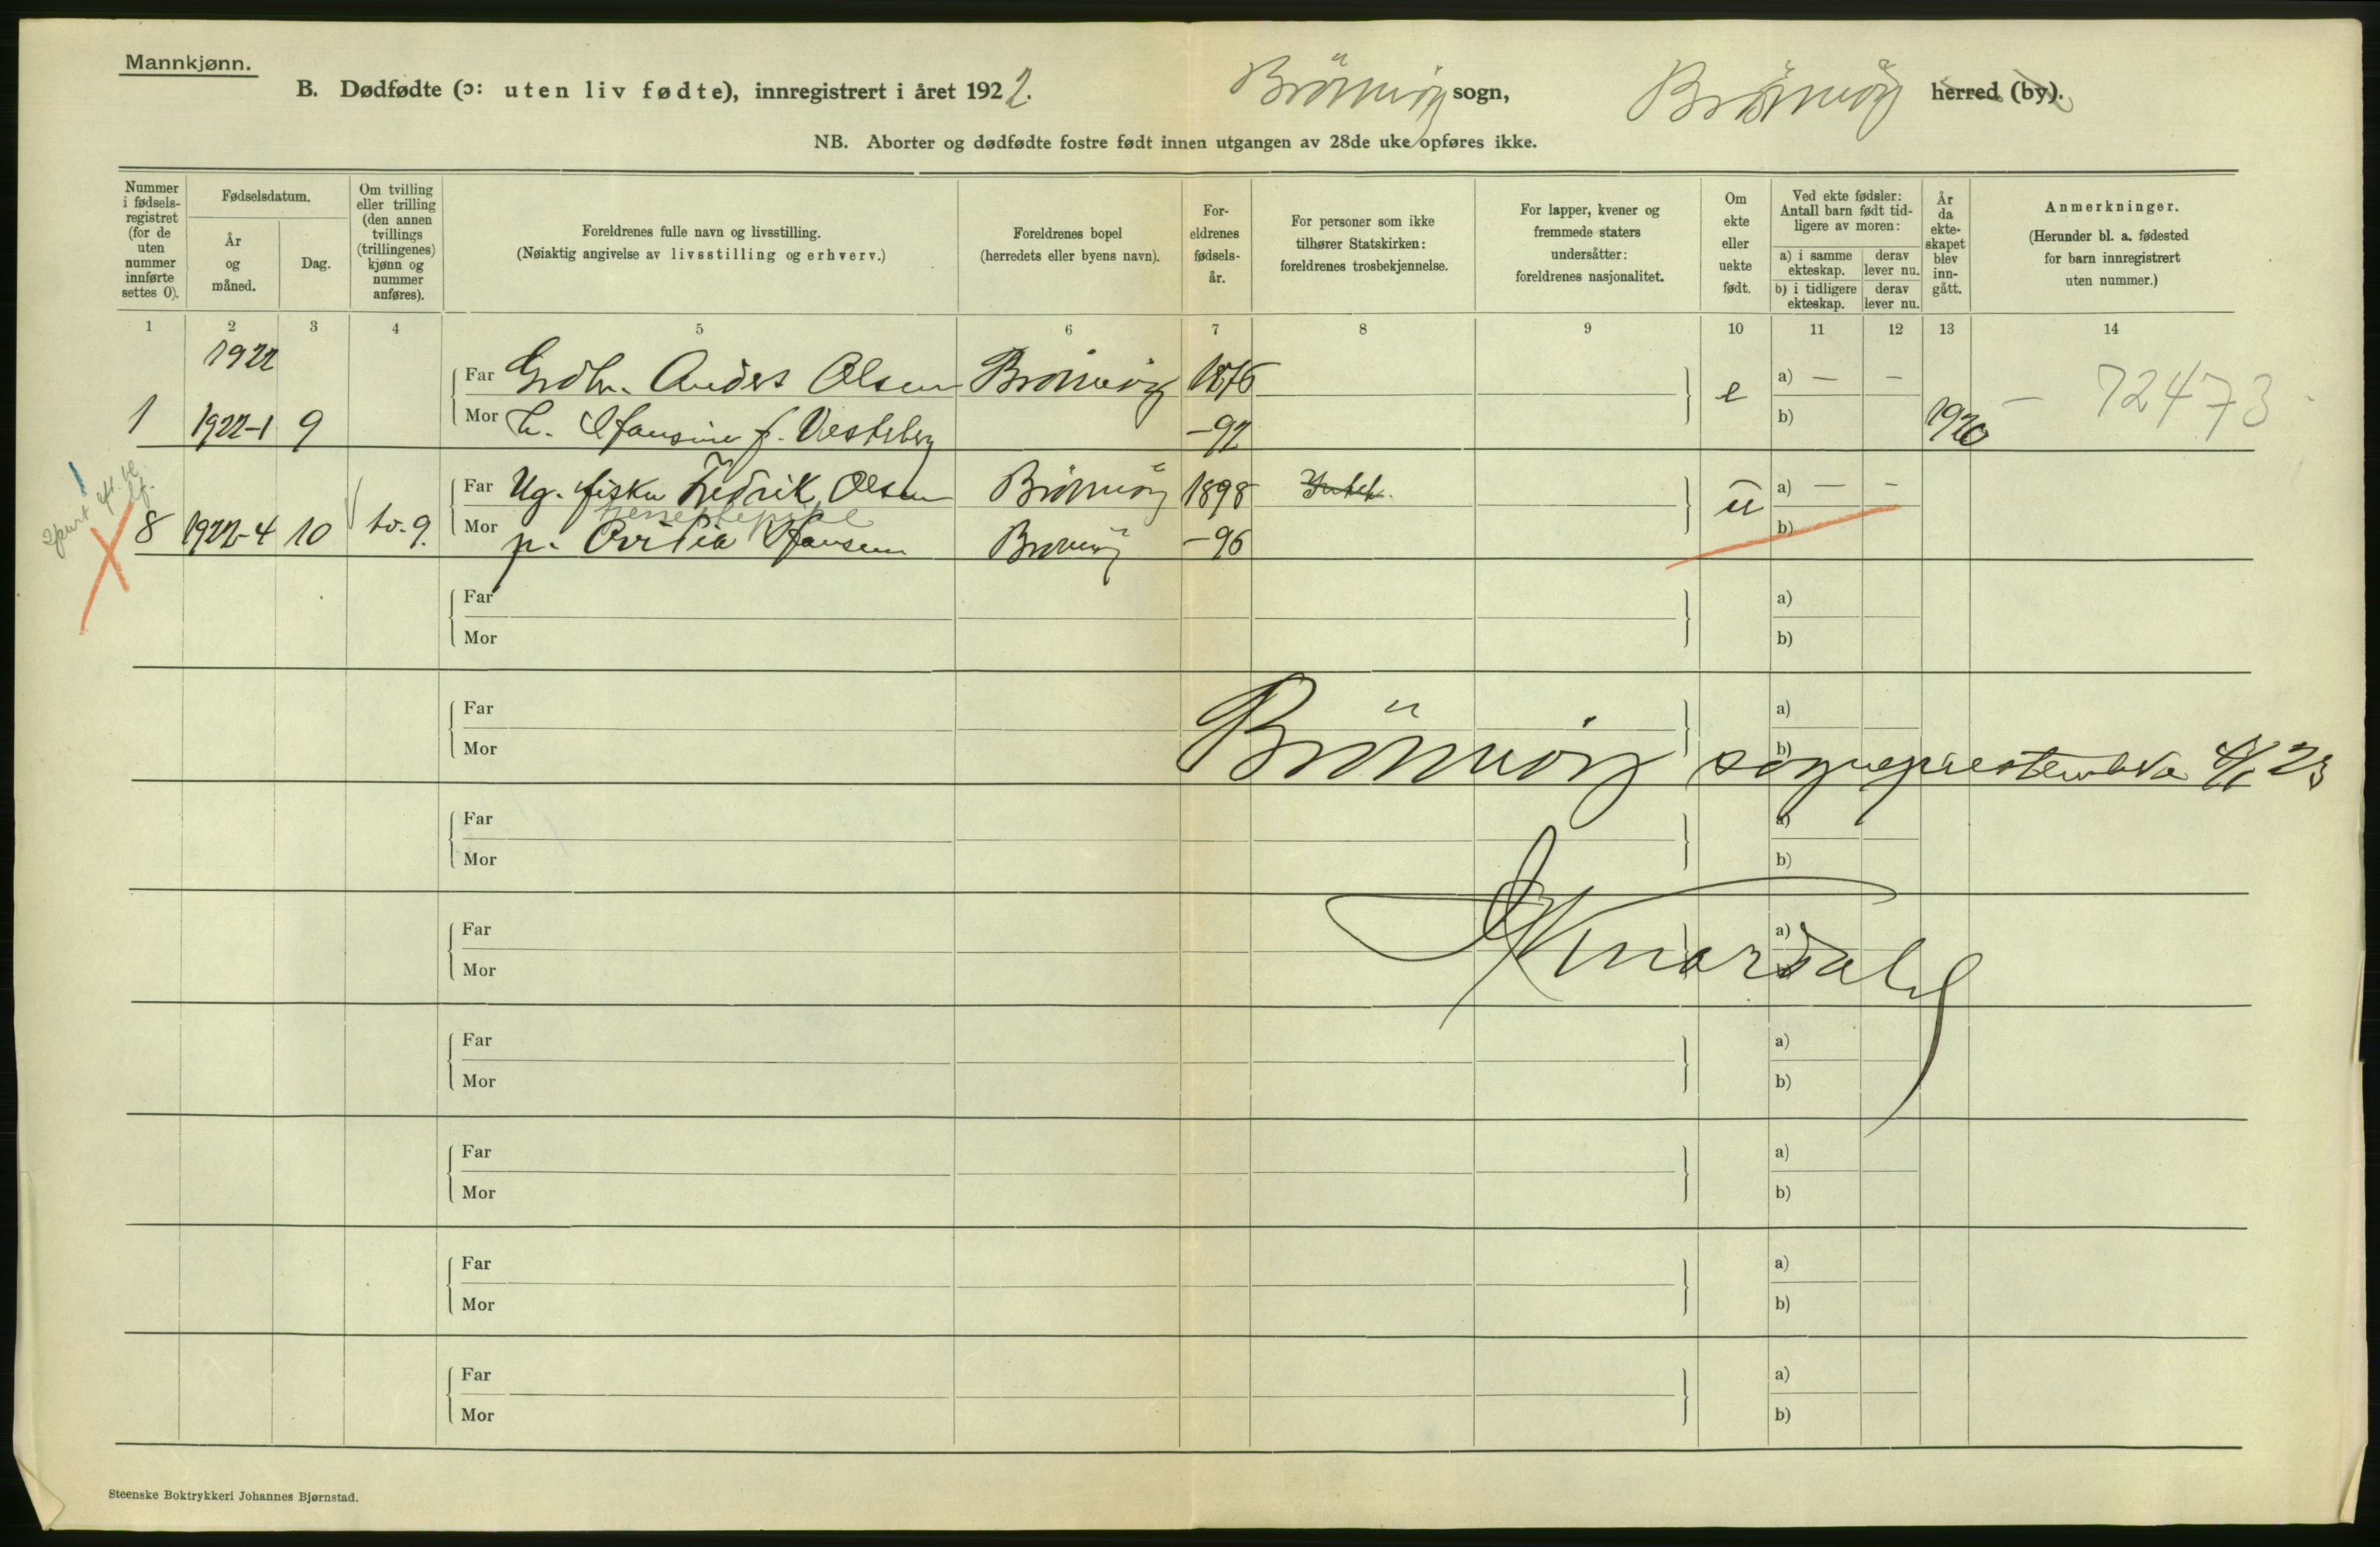 Mannkjønn.
B. Dødfødte (ɔ: uten liv fødte), innregistrert i året 1922. Brönnöy sogn, Brönnöy herred (by).
NB. Aborter og dødfødte fostre født innen utgangen av 28de uke opføres ikke.
Nummer i fødsels-registret (for de uten nummer innførte settes 0).
Fødselsdatum.
År og måned.
Dag.
Om tvilling eller trilling (den annen tvillings (trillingenes) kjønn og nummer anføres).
Foreldrenes fulle navn og livsstilling.
(Nøiaktig angivelse av livsstilling og erhverv.)
Foreldrenes bopel
(herredets eller byens navn).
For-eldrenes fødsels-år.
For personer som ikke tilhører Statskirken: foreldrenes trosbekjennelse.
For lapper, kvener og fremmede staters undersåtter: foreldrenes nasjonalitet.
Om ekte eller uekte født.
Ved ekte fødsler: Antall barn født tid-ligere av moren:
a) i samme ekteskap. derav lever nu.
b) i tidligere ekteskap. derav lever nu.
År da ekte-skapet blev inn-gått.
Anmerkninger.
(Herunder bl. a. fødested for barn innregistrert uten nummer.)
1 2 3 4 5 6 7 8 9 10 11 12 13 14
1922
Far Grdbr. Anders Olsen Brönnöy 1876 e a) — — 72473
1 1922-1 9 Mor h. Hansine f. Vesteberg -92 b) 1920 —
Far Ug. fisker Fredrik Olsen Brönnöy 1898 u a) — —
8 1922-4 10 tv. 9. Mor p. Ovidia Hansen Brönnöy -96 b)
Far a)
Mor b)
Far a)
Mor b)
Brönnöy sogneprestembede 4/1 23
Far a)
Mor b)
Far a)
Mor
Far a)
Mor b)
Far a)
Mor b)
Far a)
Mor b)
Far a)
Mor b)
Steenske Boktrykkeri Johannes Bjørnstad.